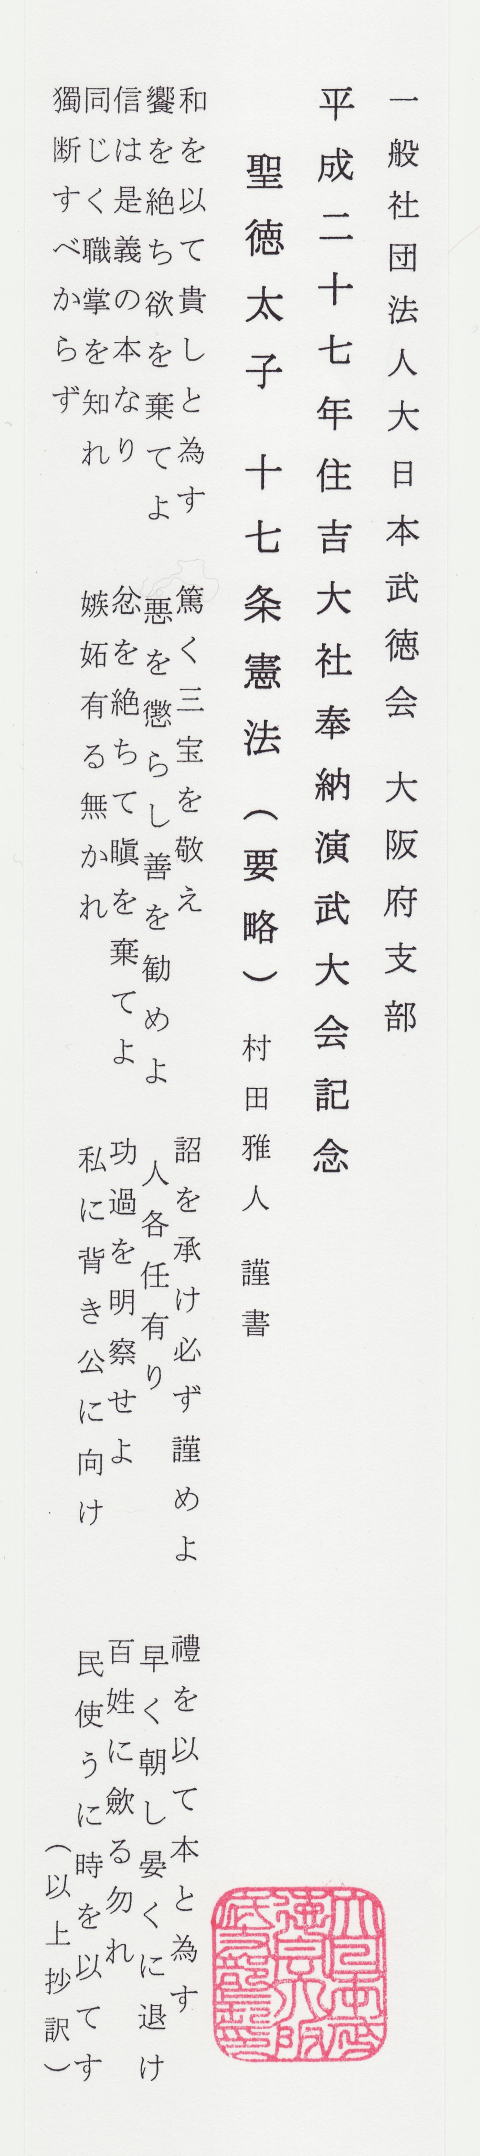 一般社団法人大日本武徳会 大阪府支部
平成二十七年住吉大社奉納演武大会記念
聖徳太子 十七条憲法（要略） 村田雅人 謹書
和を以て貴しと為す 篤く三宝を敬え 詔を承け必ず謹めよ 禮を以て本と為す
饗を絶ち欲を棄てよ 悪を懲らし善を勧めよ 人各任有り 早く朝し晏くに退け
信は是義の本なり 忿を絶ちて瞋を棄てよ 功過を明察せよ 百姓に歛る勿れ
同じく職掌を知れ 嫉妬有る無かれ 私に背き公に向け 民使うに時を以てす
獨断すべからず （以上抄訳）
大日本武徳会大阪府支部長印